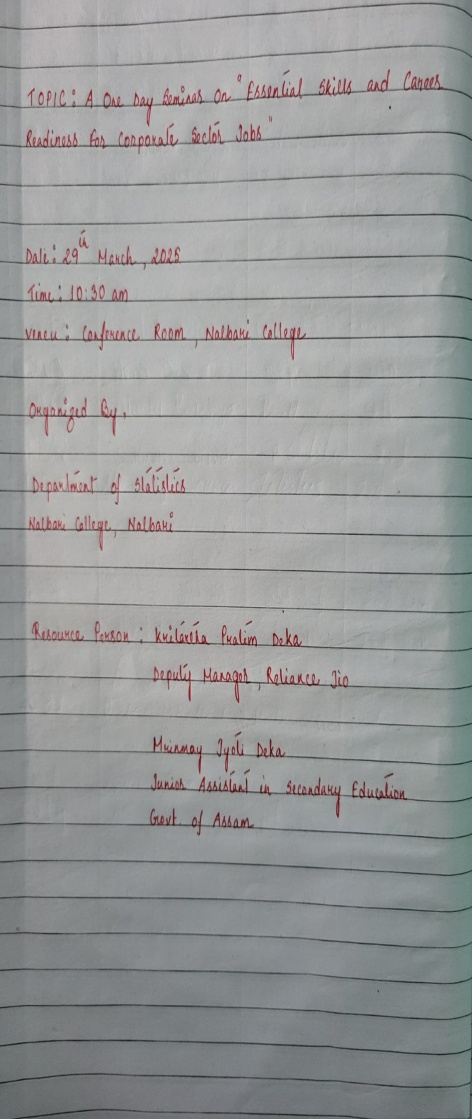 TOPIC: A One Day Seminar On "Essential Skills and Career
Readiness For Corporate Sector Jobs"
Date: 29th March, 2025
Time: 10:30 am
Veneu: Conference Room, Nalbari College
Organized By,
Department of Statistics
Nalbari College, Nalbari
Resource Person: Kritartha Pratim Deka
Deputy Manager, Reliance Jio
Mrinmay Jyoti Deka
Junior Assistant in Secondary Education
Govt. of Assam